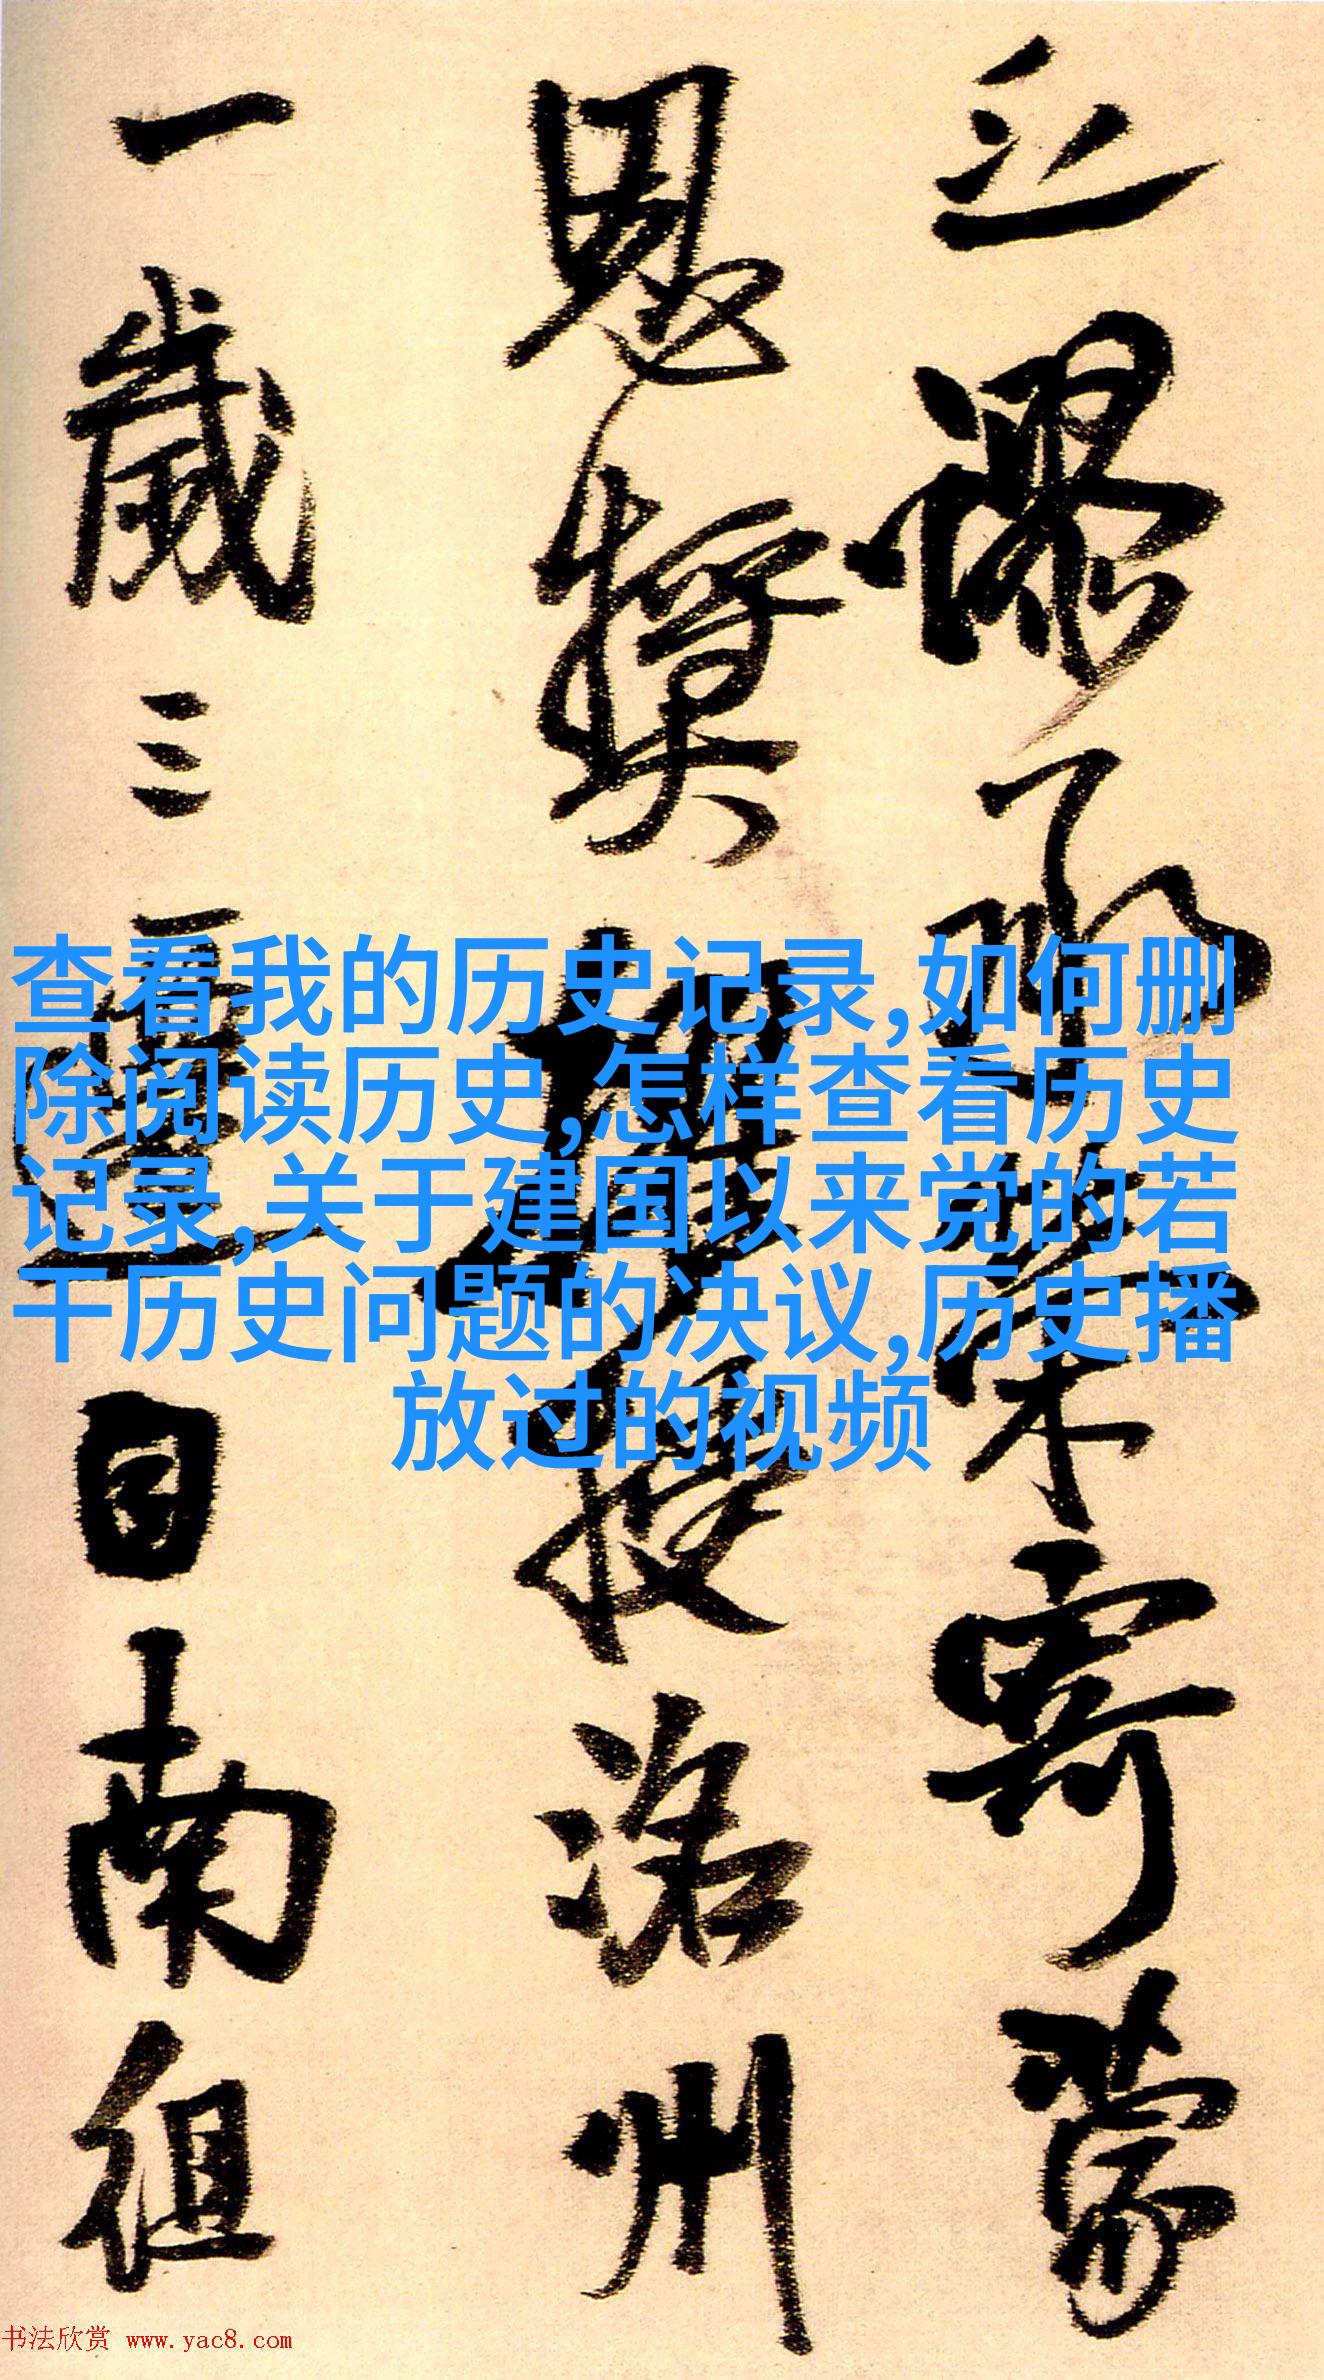 之謬承榮寄蒙
恩獎擢授洺州
一歲三遷自南徂
查看我的历史记录,如何删
除阅读历史,怎样查看历史
记录,关于建国以来党的若
干历史问题的决议,历史播
放过的视频
书法欣赏 www.yac8.com